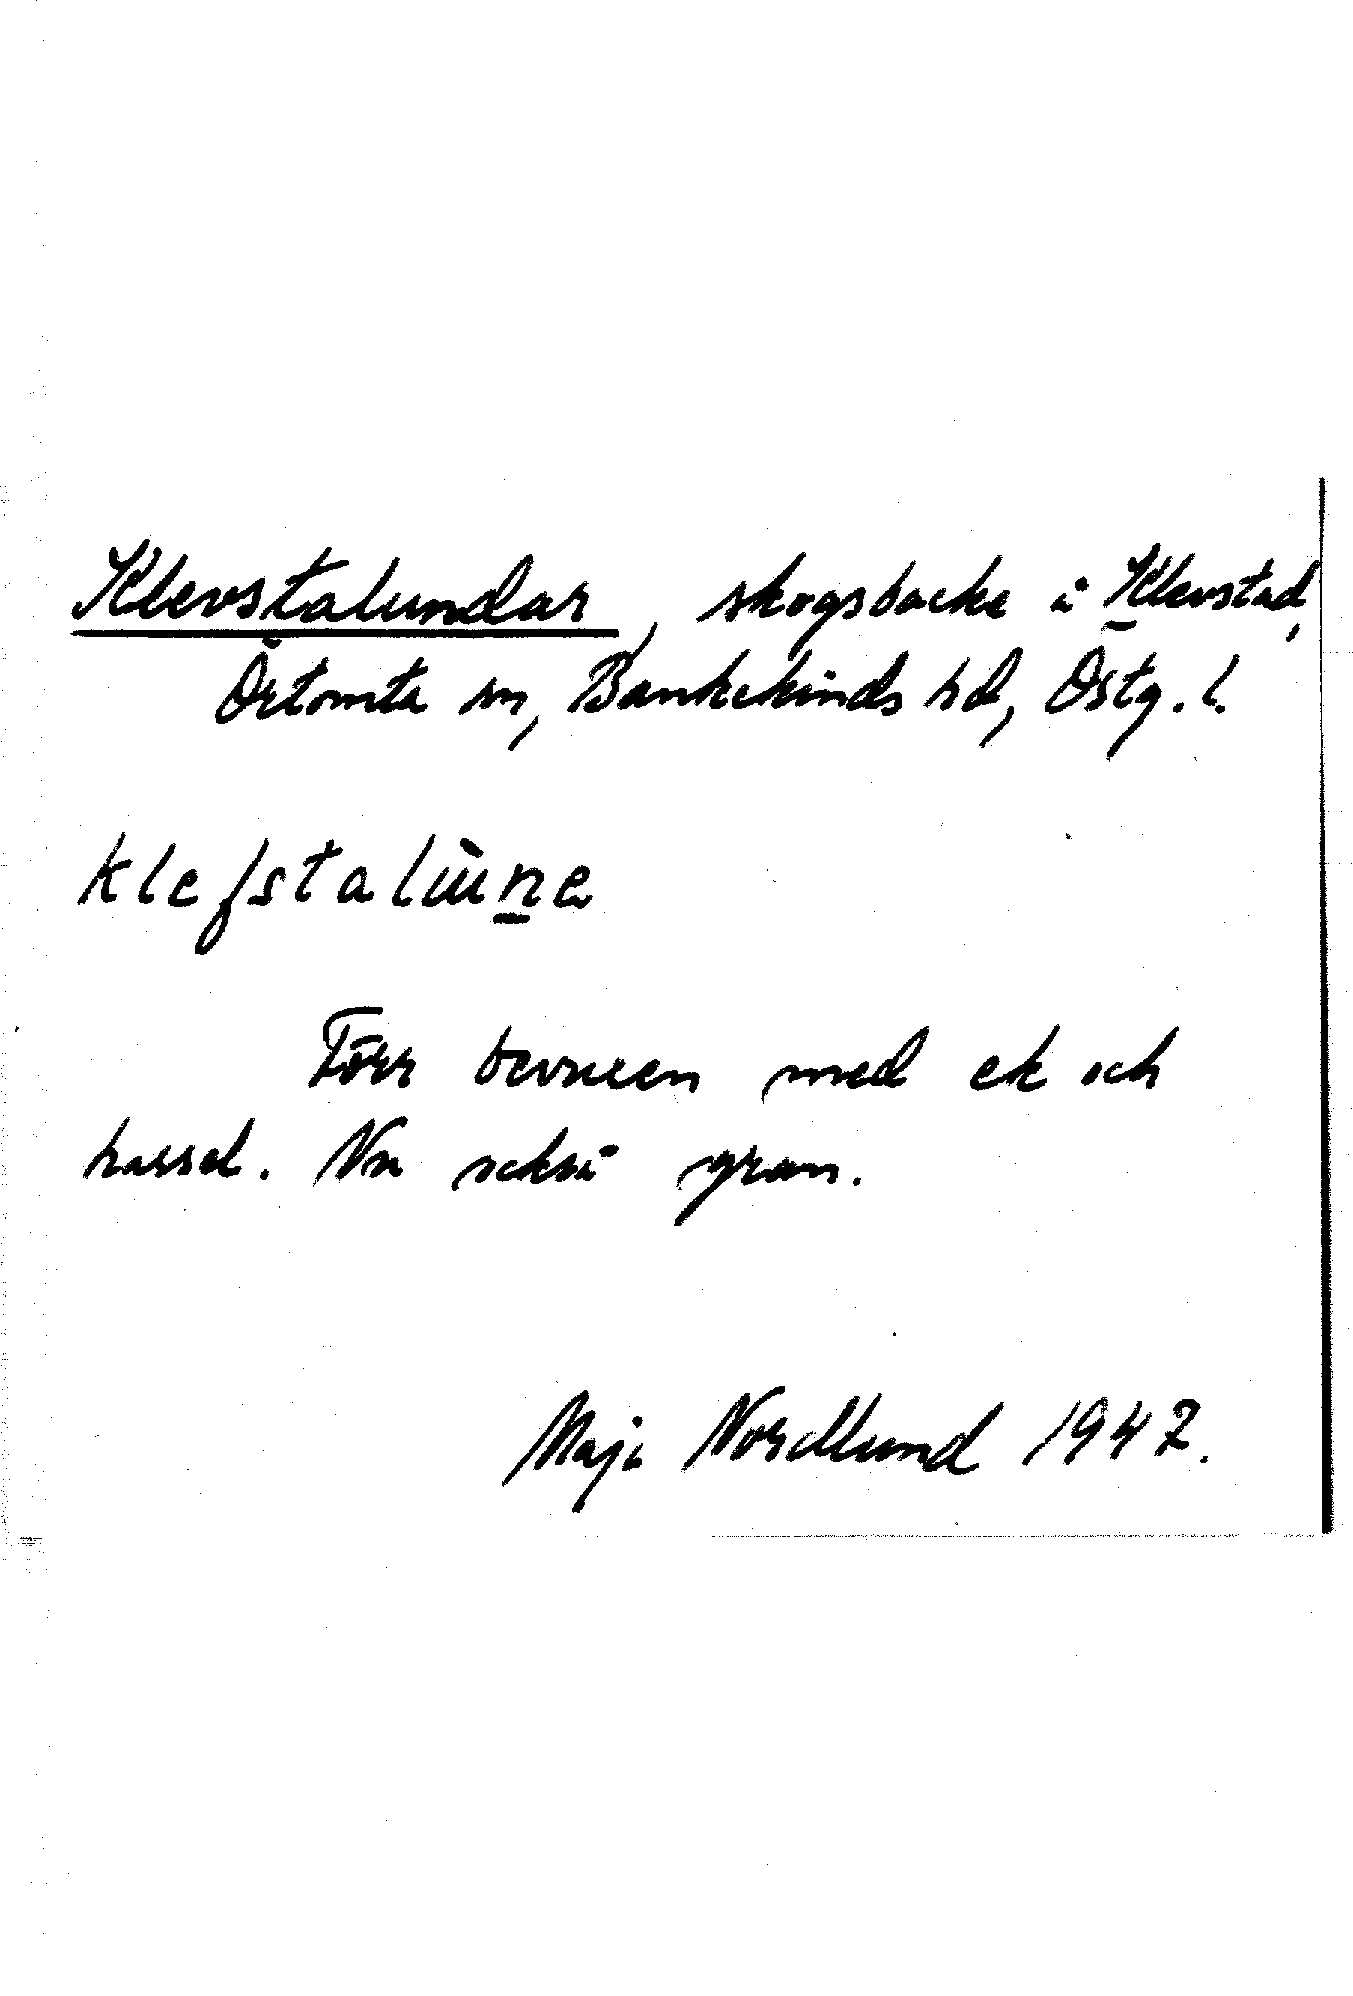 Klevstalundar, skogsbacke i Klevstad,
Örtomta sn, Bankekinds hd, Östg. l.
klefstalùn̲e
Förr bevuxen med ek och
hassel. Nu också gran.
Maja Nordlund 1947.